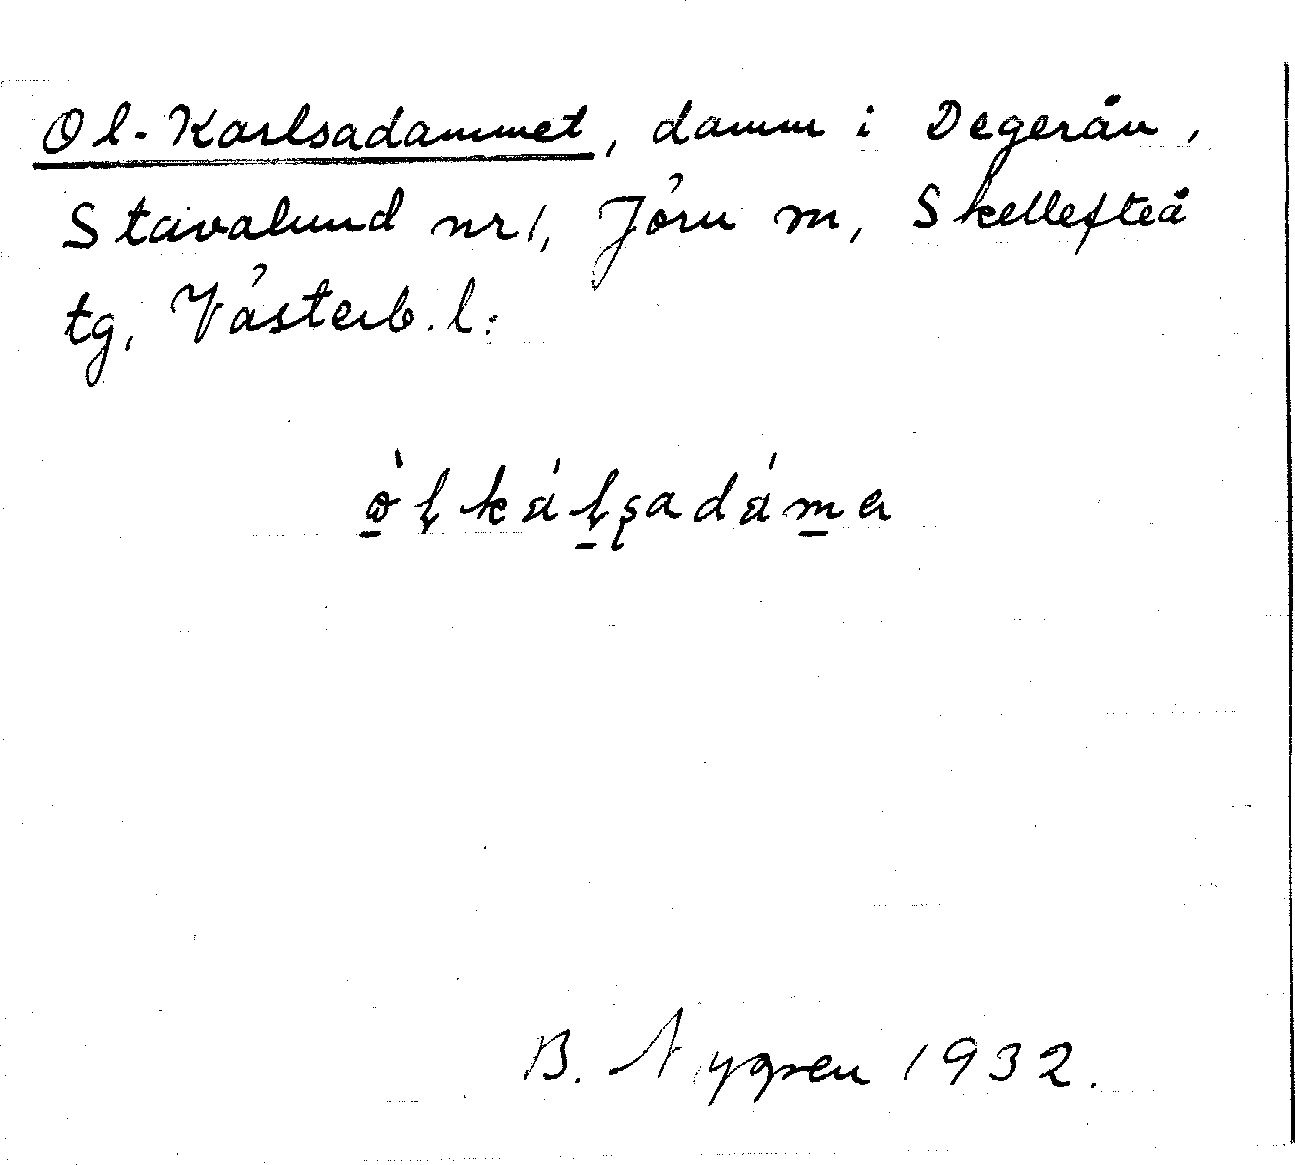 Ol-Karlsadammet, damm i Degerån,
Stavalund nr 1, Jörn sn, Skellefteå
tg, Västerb. l.
B. Nygren 1932.